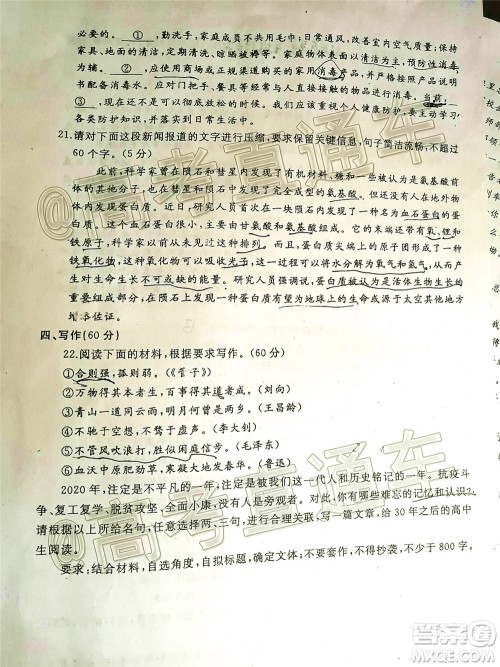 必要的。 ① ，勤洗手，家庭成员不共用毛巾；日常通风，改善室内空气质量；保持
家具、地面的清洁，定期清洗、晾晒被褥等。日常家居清洁以清洁为主，预防性消毒
为辅。 ② ，应使用商场或正规渠道购买的家用消毒产品，并严格按照产品说明
书配备消毒人员。应对门把手、餐具等经常与手接触的物品进行消毒。当前，
③ ，现在还不是放松的时候，希望大家重视个人健康防护，要主动学习
各类防护知识，并自觉执行。
21.请对下面这段新闻报道的文字进行压缩，要求保留关键信息，句子简洁流畅，不超过
60个字。(5分)
此前，科学家曾在陨石和彗星内发现了有机材料、糖和被认为是氨基酸前体
的其他分子，在彗星和陨石中发现了完全成形的氨基酸。但还没有人在外来物体
内发现过蛋白质。近日，研究人员首次在一块陨石内发现了一种名为血石蛋白的蛋
白质。这种蛋白质的主要由甘氨酸和氨基酸构成。它的末端还带有氧、锂和
铁原子，科学家此前从未见过这种排列。蛋白质尖端上的原子团形成了一种
铁氧化物，这种氧化物可以吸收光子，这一过程使其可以将水分解为氧气和氢气，从而
对产生对生命生长不可或缺的能量。研究人员强调说，蛋白质被认为是活体生物生长的
重要组成部分，在陨石上发现蛋白质有望为地球上的生命或源于太空其他地方
增添佐证。
四、写作(60分)
22.阅读下面的材料，根据要求写作。(60分)
①合则强，孤则弱。(《管子》)
②万物得其本者生，百事得其道者成。(刘向)
③青山一道同云雨，明月何曾是两乡。(王昌龄)
④不驰于空想，不骛于虚声。(李大钊)
⑤不管风吹浪打，胜似闲庭信步。(毛泽东)
⑥血沃中原肥劲草，寒凝大地发春华。(鲁迅)
2020年，注定是不平凡的一年，注定是被我们这一代人和历史铭记的一年。抗疫斗
争、复工复学、脱贫攻坚，全面小康，我们都没有旁观者。对此，你有哪些难忘的记忆和认识？
请根据以上所给名句，任意选择两、三句，进行合理关联，写一篇文章，给30年之后的高中
生阅读。
要求：结合材料，自选角度，自拟标题，确定文体；不要套作，不得抄袭，不少于800字。
@高考直通车
@高考直通车
答案圈
MXQE.COM